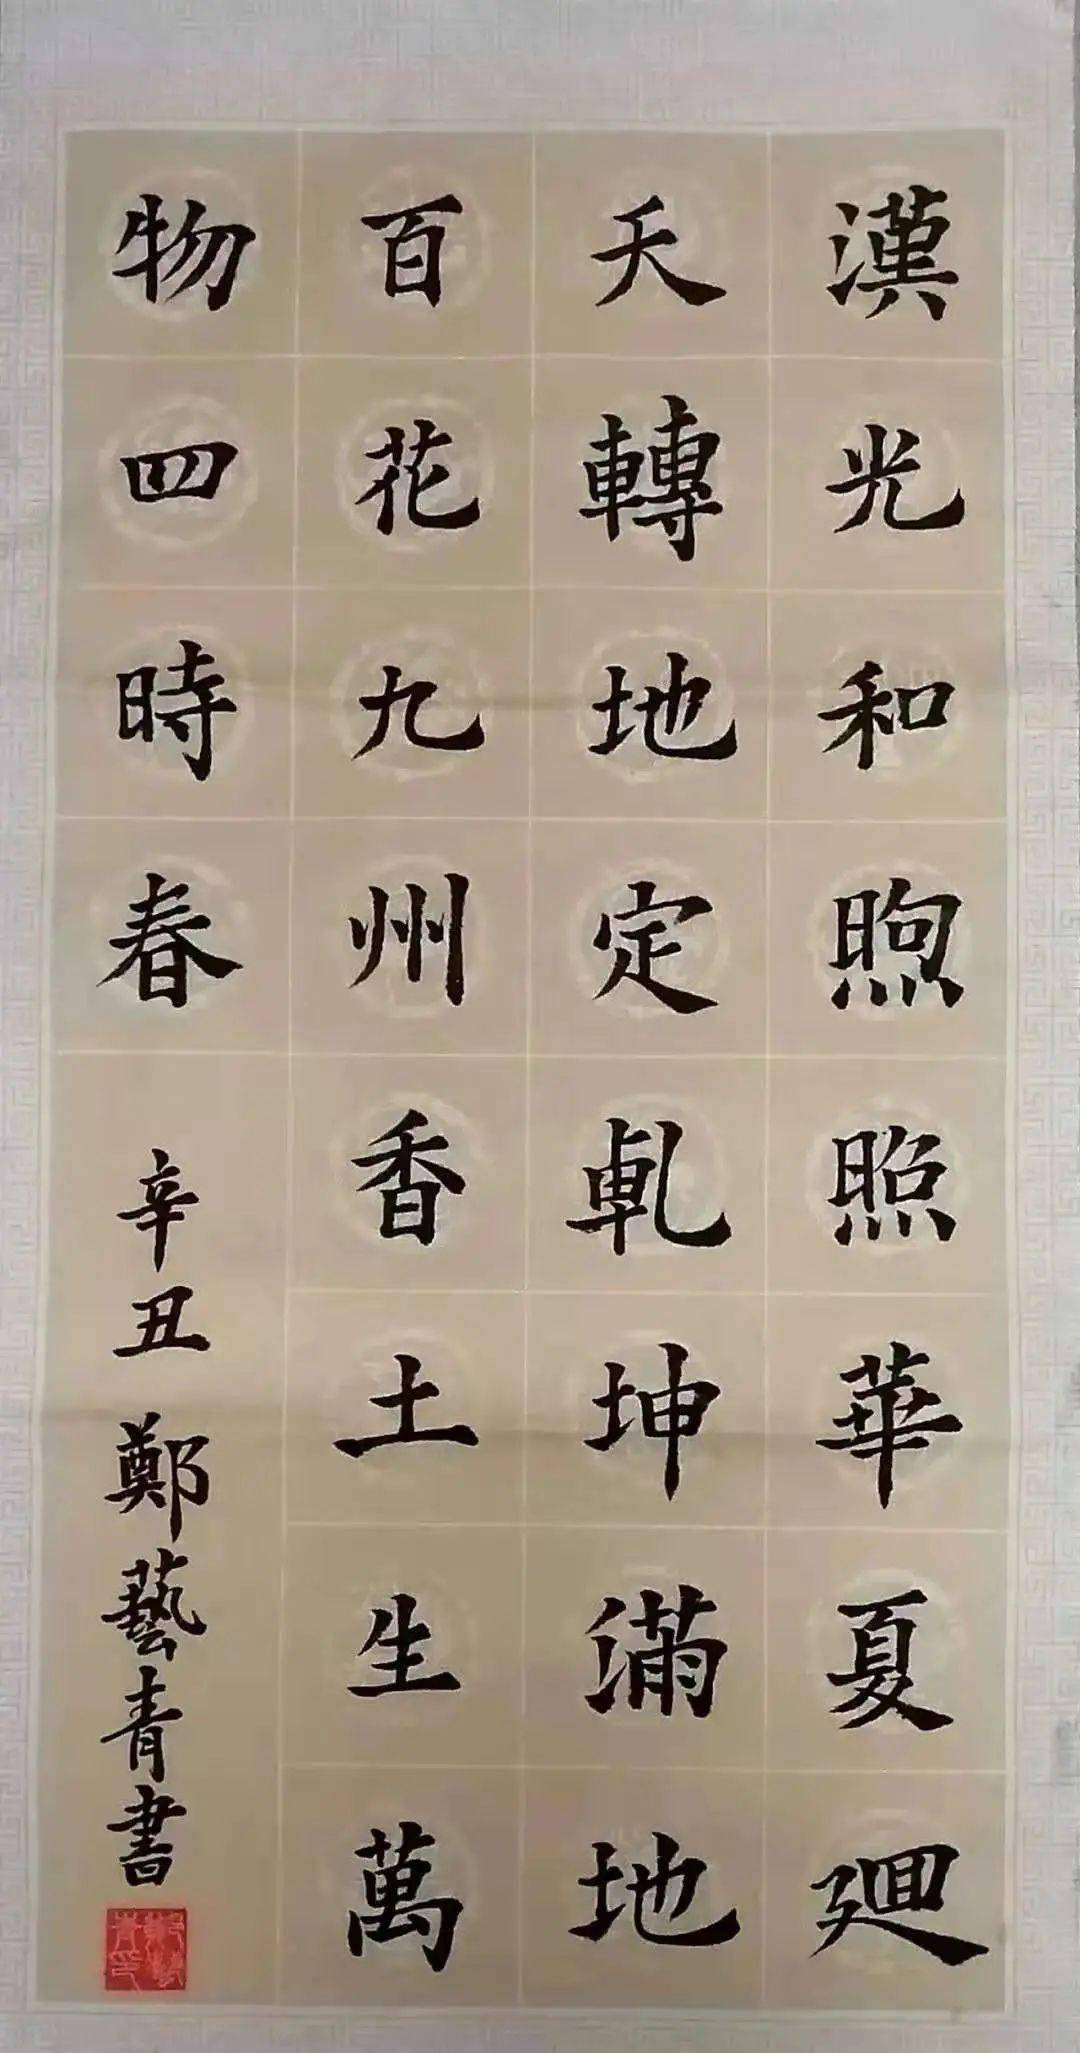 漢光和煦照華夏迴
天轉地定乹坤滿地
百花九州香土生萬
物四時春
辛丑鄭藝青書
鄭藝青印